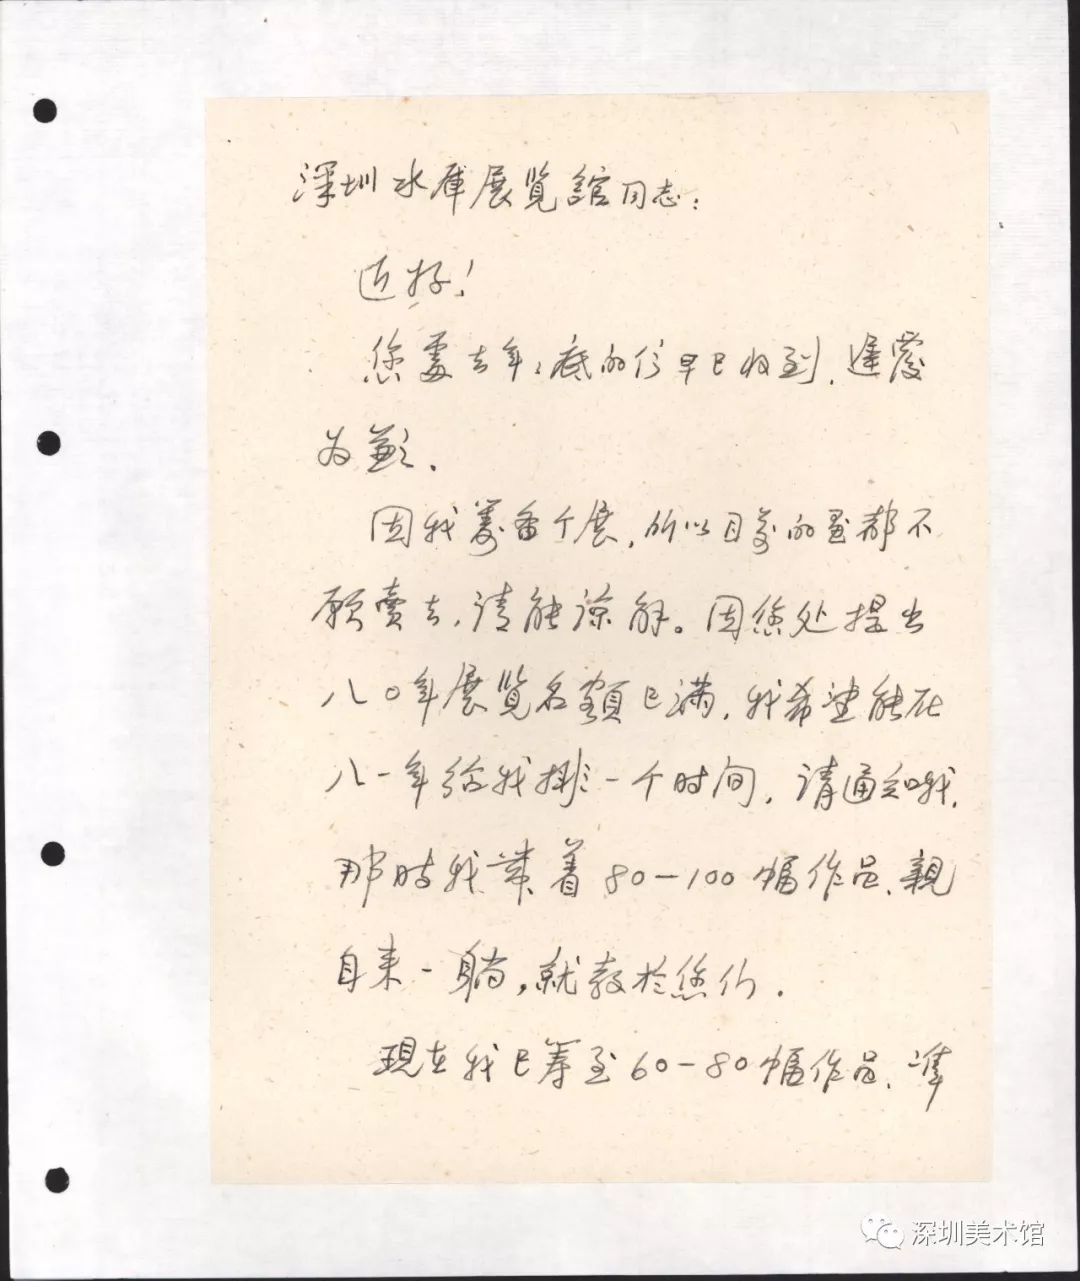 深圳水库展览館同志：
近好！
您處去年年底的信早已收到，遲覆
为歉。
因我筹备个展，所以目前的画都不
愿賣去，请能谅解。因您处提出
八〇年展览名額已满，我希望能在
八一年给我排一个时间，请通知我，
那时我带着80—100幅作品，親
自来一躺，就教於您们。
现在我已筹至60—80幅作品，準
深圳美术馆